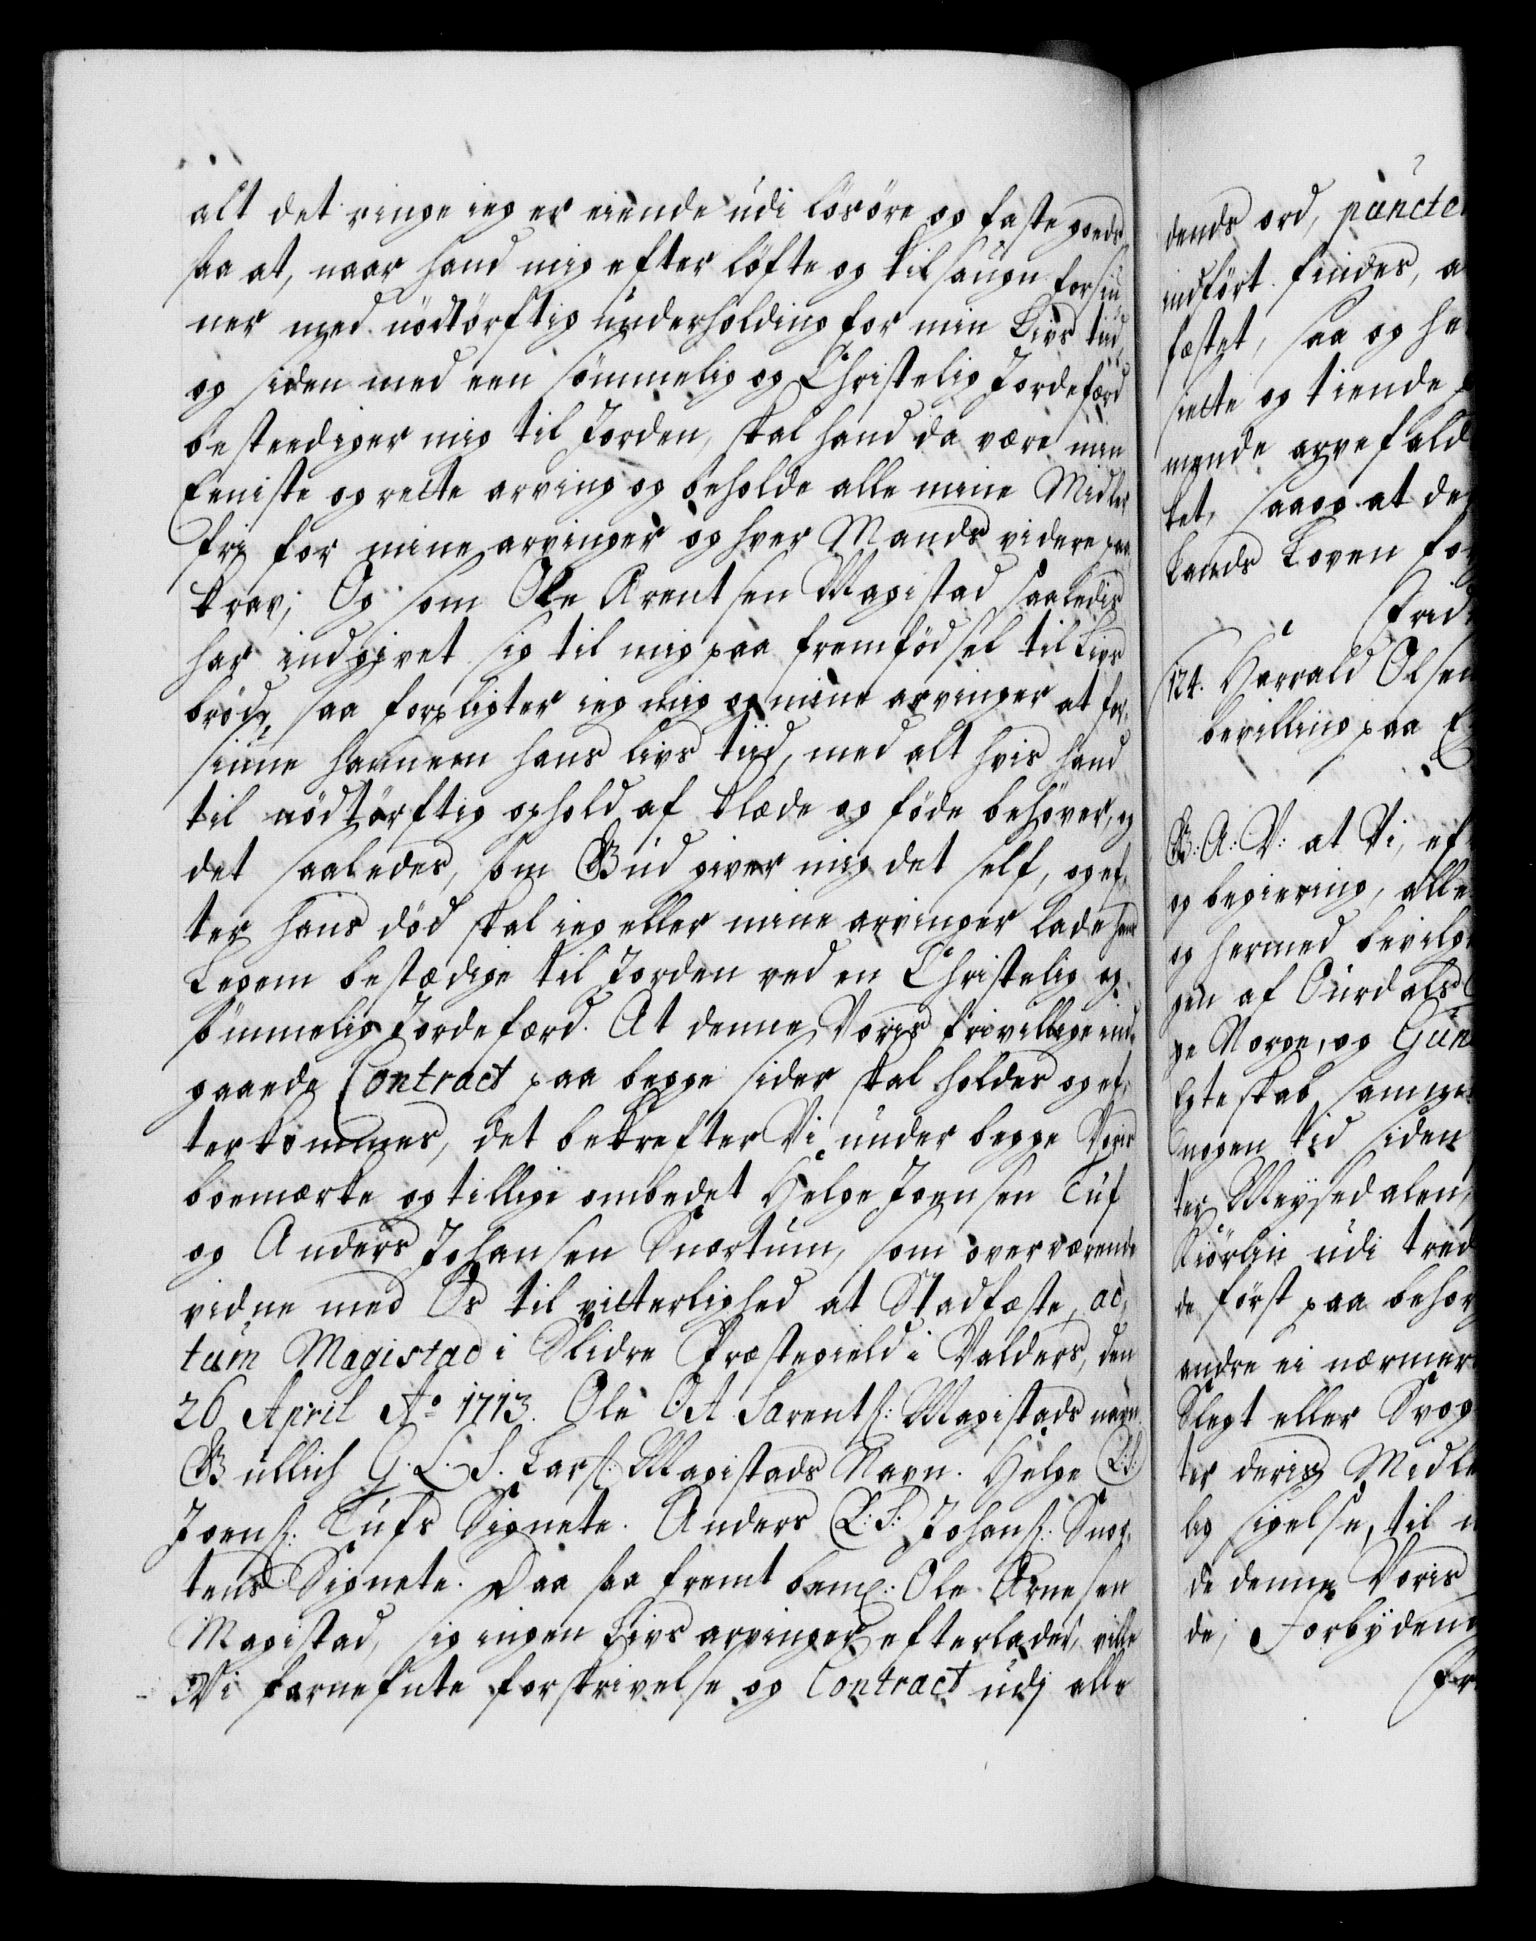 alt det ringe ieg er eiende udi lösöre og faste goeds
saa at, naar hand mig efter löfte og tilsaugn forsiu,
ner med nödtörftig underholding for min Livs tiid,
og siden med een sömmelig og Christelig Jordefærd
bestædiger mig til Jorden, skal hand da være min
Eeniste og rette arving og beholde alle mine Midler
fri for mine arvinger og hver Mands videre paa,
krav; Og som Ole Arentsen Magistad saaledis
har indgivet sig til mig paa fremfödsel til Livs
bröd, saa forpligter ieg mig og mine arvinger at for,
siune hannem hans livs tiid, med alt hvis hand
til nödtörftig ophold af klæde og föde behöver, og
det saaledes, som Gud giver mig det self, og ef,
ter hans död skal ieg eller mine arvinger lade hans
Legem bestædige til Jorden ved en Christelig og
sömmelig Jordefærd. At denne Voris frivillige ind,
gaaede Contract paa begge sider skal holdes og ef,
terkommes, det bekrefter Vi under begge Voris
boemærke og tillige ombedet Helge Joensen Tuf
og Anders Johansen Snortum, som overværende
vidne med Os til vitterlighed at Stadfæste, ac,
tum Magistad i Slidre Præstegield i Valders, den
26 April Ao 1713. Ole OA Sarents: Magistads navn
Gullich G. L. S. Lars: Magistads Navn. Helge L.S:
Joens: Tufs Signete. Anders L:S: Johans: Snor,
tens Signete. Daa saa fremt bem: Ole Arnesen
Magistad, sig ingen Livs arvinger efterlader, ville
Vi fornefnte forskrivelse og Contract udj alle
dends ord, puncter
indfört findes, a
fæstet, saa og ha
siette og tiende
mende arvefald
tet, saa og at de
Lands Loven for
Frid
124. Harrald Olsen
bevilling paa E
G: A: V: at Vi, ef
og begiering, alle
og hermed bevilge
gen af Ourdals
ge Norge, og Gun
Egteskab sammen
nogen tid siden
ter Meysedalen,
Kiörlin udi tred
de först paa behör
andre ei nærmere
Slegt eller Svog
ter deris Midle
lig sigelse, til
de denne Voris
de; Forbydend
Fr